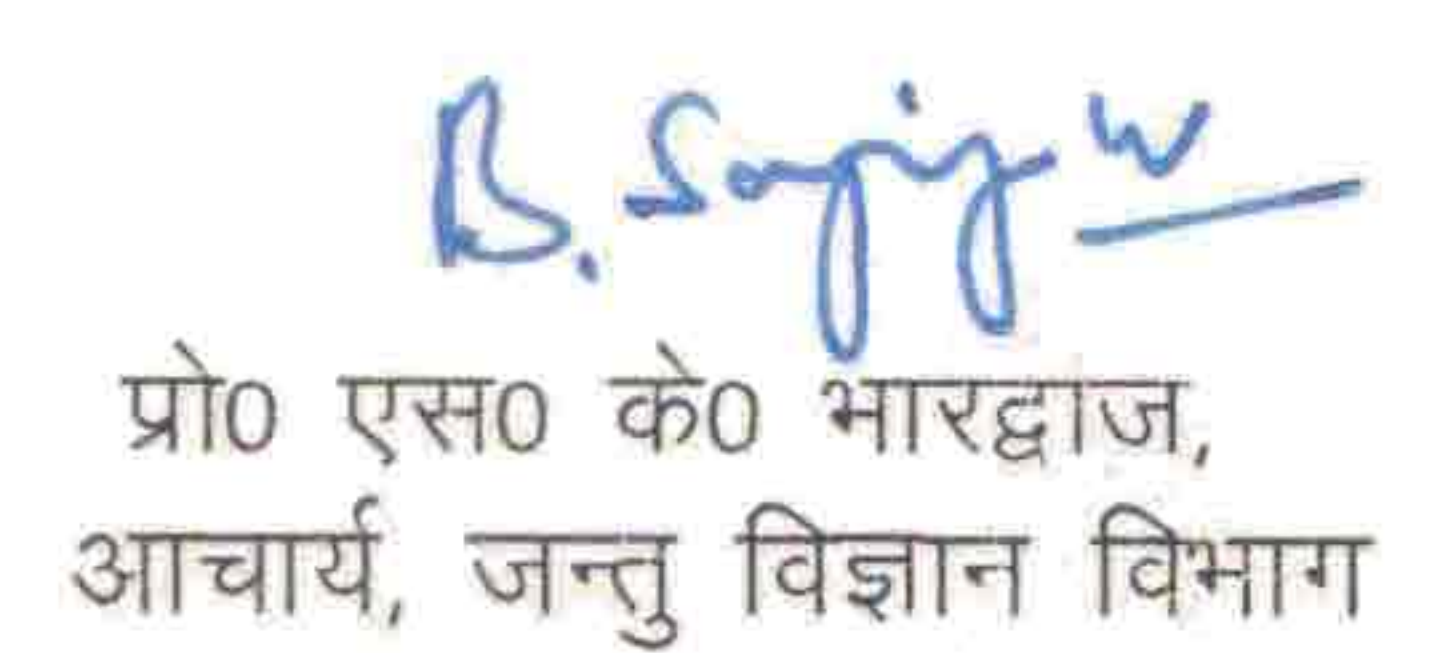 प्रो0 एस0 के0 भारद्वाज,
आचार्य, जन्तु विज्ञान विभाग